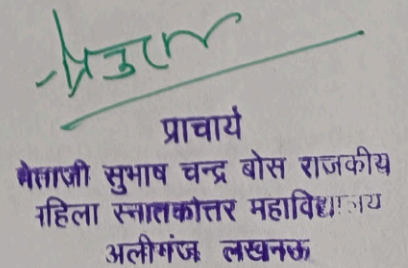 प्राचार्य
नेताजी सुभाष चन्द्र बोस राजकीय
महिला स्नातकोत्तर महाविद्यालय
अलीगंज लखनऊ